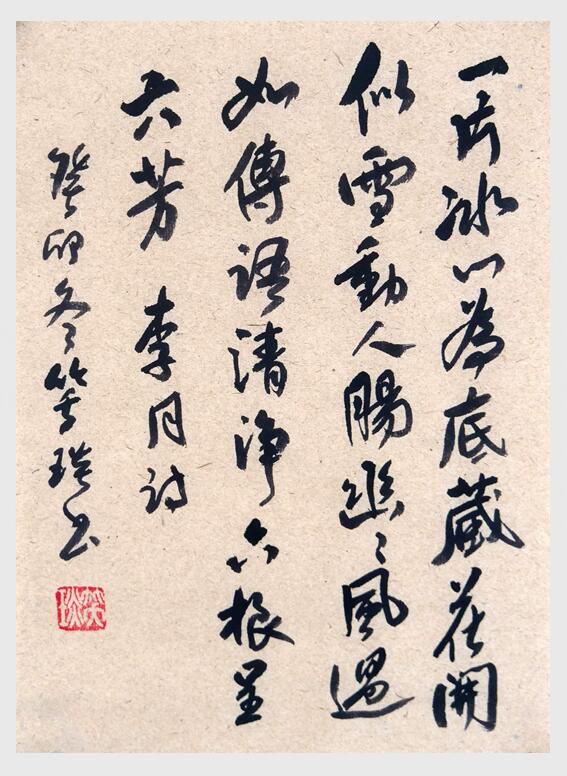 一片冰心為底藏花開
似雪動人腸幽〻風過
如傳語清淨六根呈
六芳 李月诗
癸卯冬笑琰书
笑琰